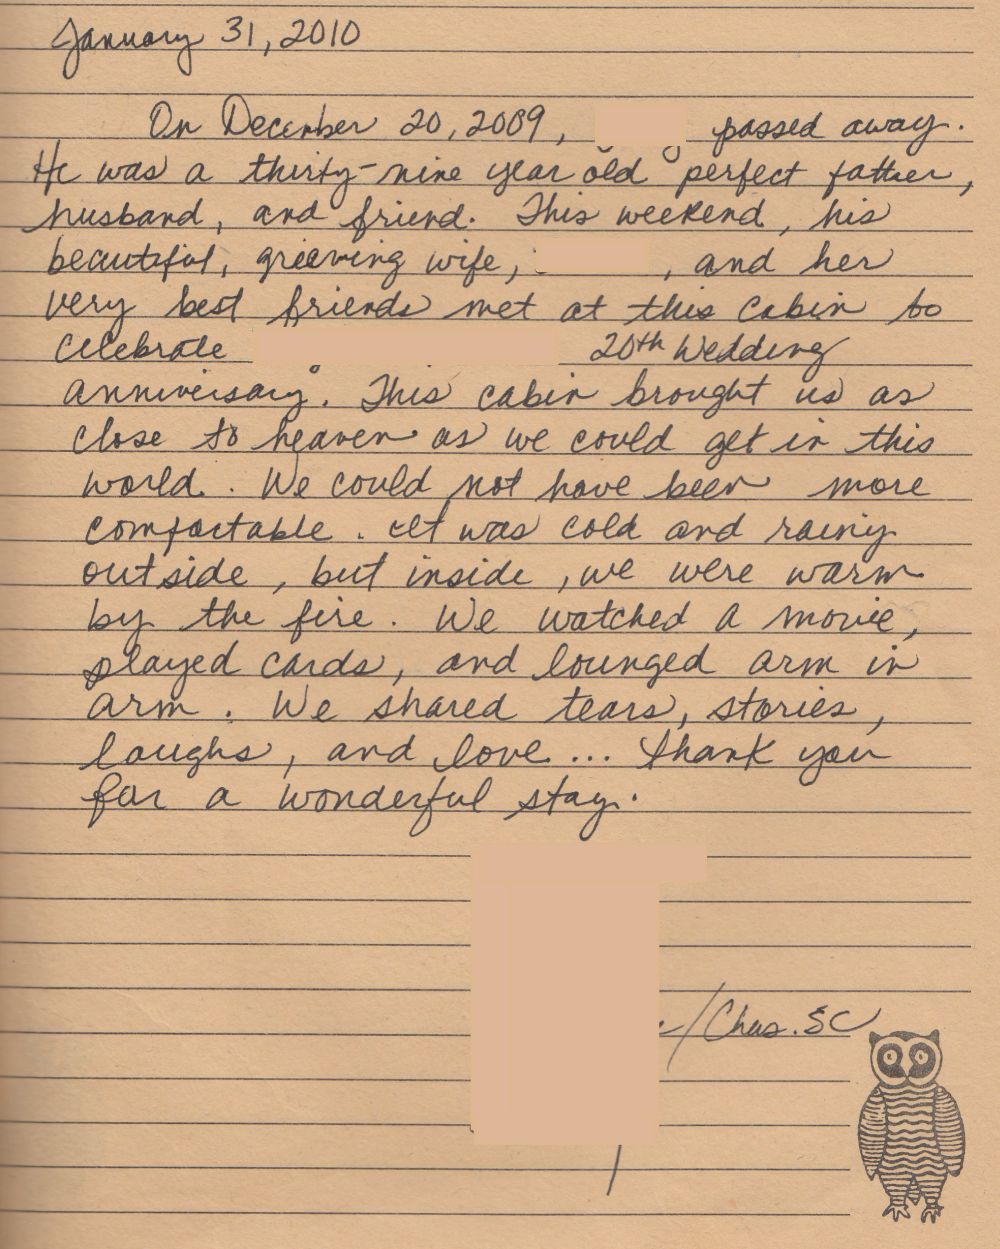 January 31, 2010
On December 20, 2009, passed away.
He was a thirty-nine year old perfect father,
husband, and friend. This weekend, his
beautiful, grieving wife, , and her
very best friends met at this cabin to
celebrate 20th Wedding
anniversary. This cabin brought us as
close to heaven as we could get in this
world. We could not have been more
comfortable. It was cold and rainy
outside, but inside, we were warm
by the fire. We watched a movie,
played cards, and lounged arm in
arm. We shared tears, stories,
laughs, and love... thank you
for a wonderful stay.
/Chas. SC